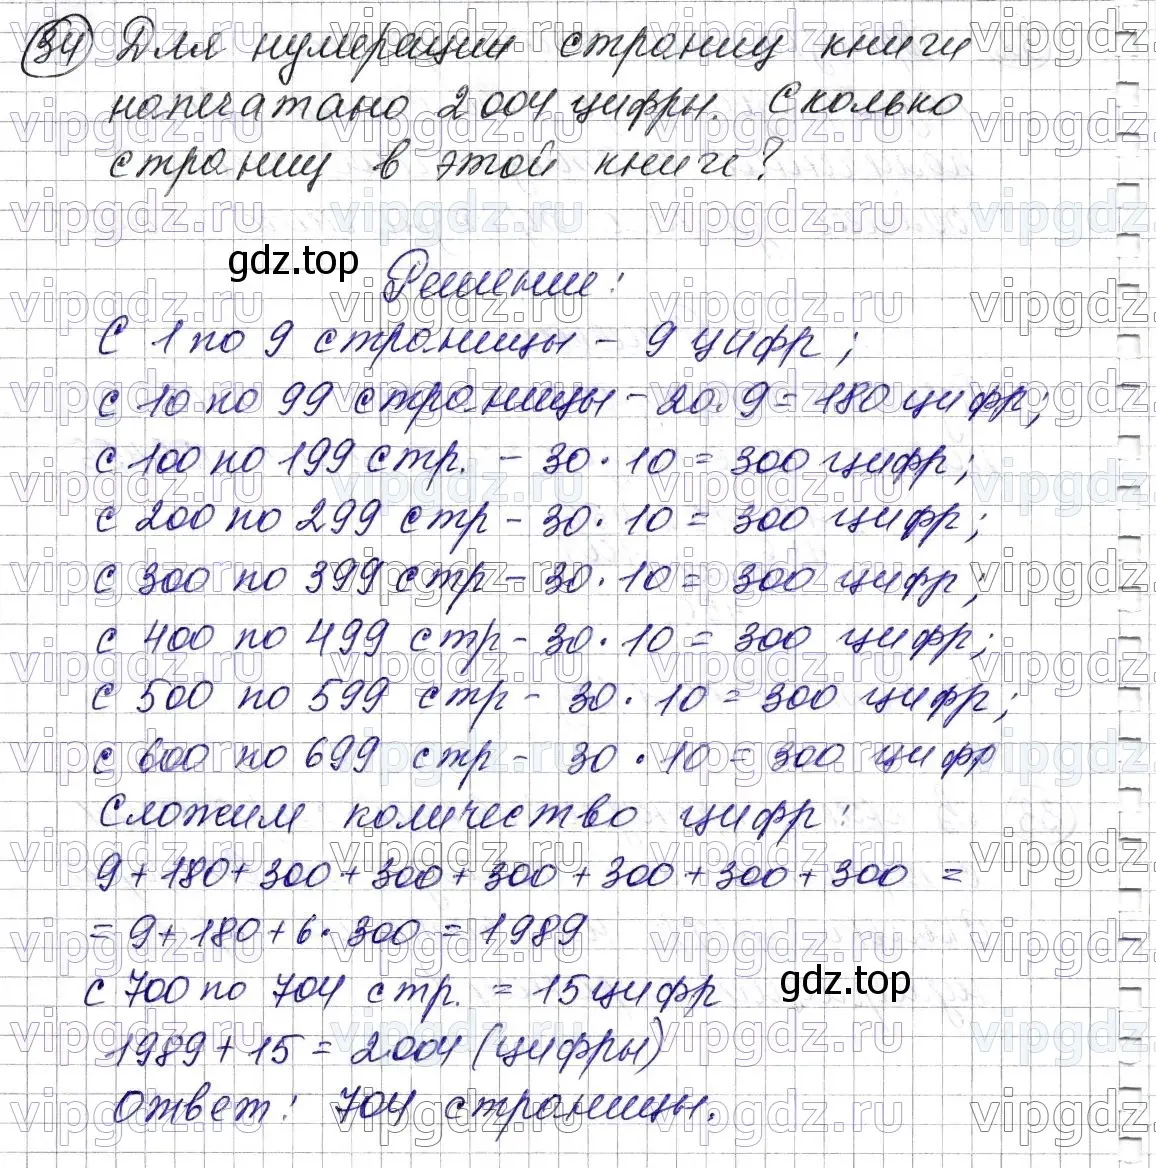 34 Для нумерации страниц книги
напечатано 2004 цифры. Сколько
страниц в этой книге?
gdz.top
Решение:
С 1 по 9 страницы – 9 цифр;
с 10 по 99 страницы – 20·9=180 цифр;
с 100 по 199 стр. – 30·10=300 цифр;
с 200 по 299 стр – 30·10=300 цифр;
с 300 по 399 стр – 30·10=300 цифр;
с 400 по 499 стр – 30·10=300 цифр;
с 500 по 599 стр – 30·10=300 цифр;
с 600 по 699 стр – 30·10=300 цифр
Сложим количество цифр:
9+180+300+300+300+300+300+300=
=9+180+6·300=1989
с 700 по 704 стр. = 15 цифр
gdz.top
1989+15=2004 (цифры)
Ответ: 704 страницы.
vipgdz.ru